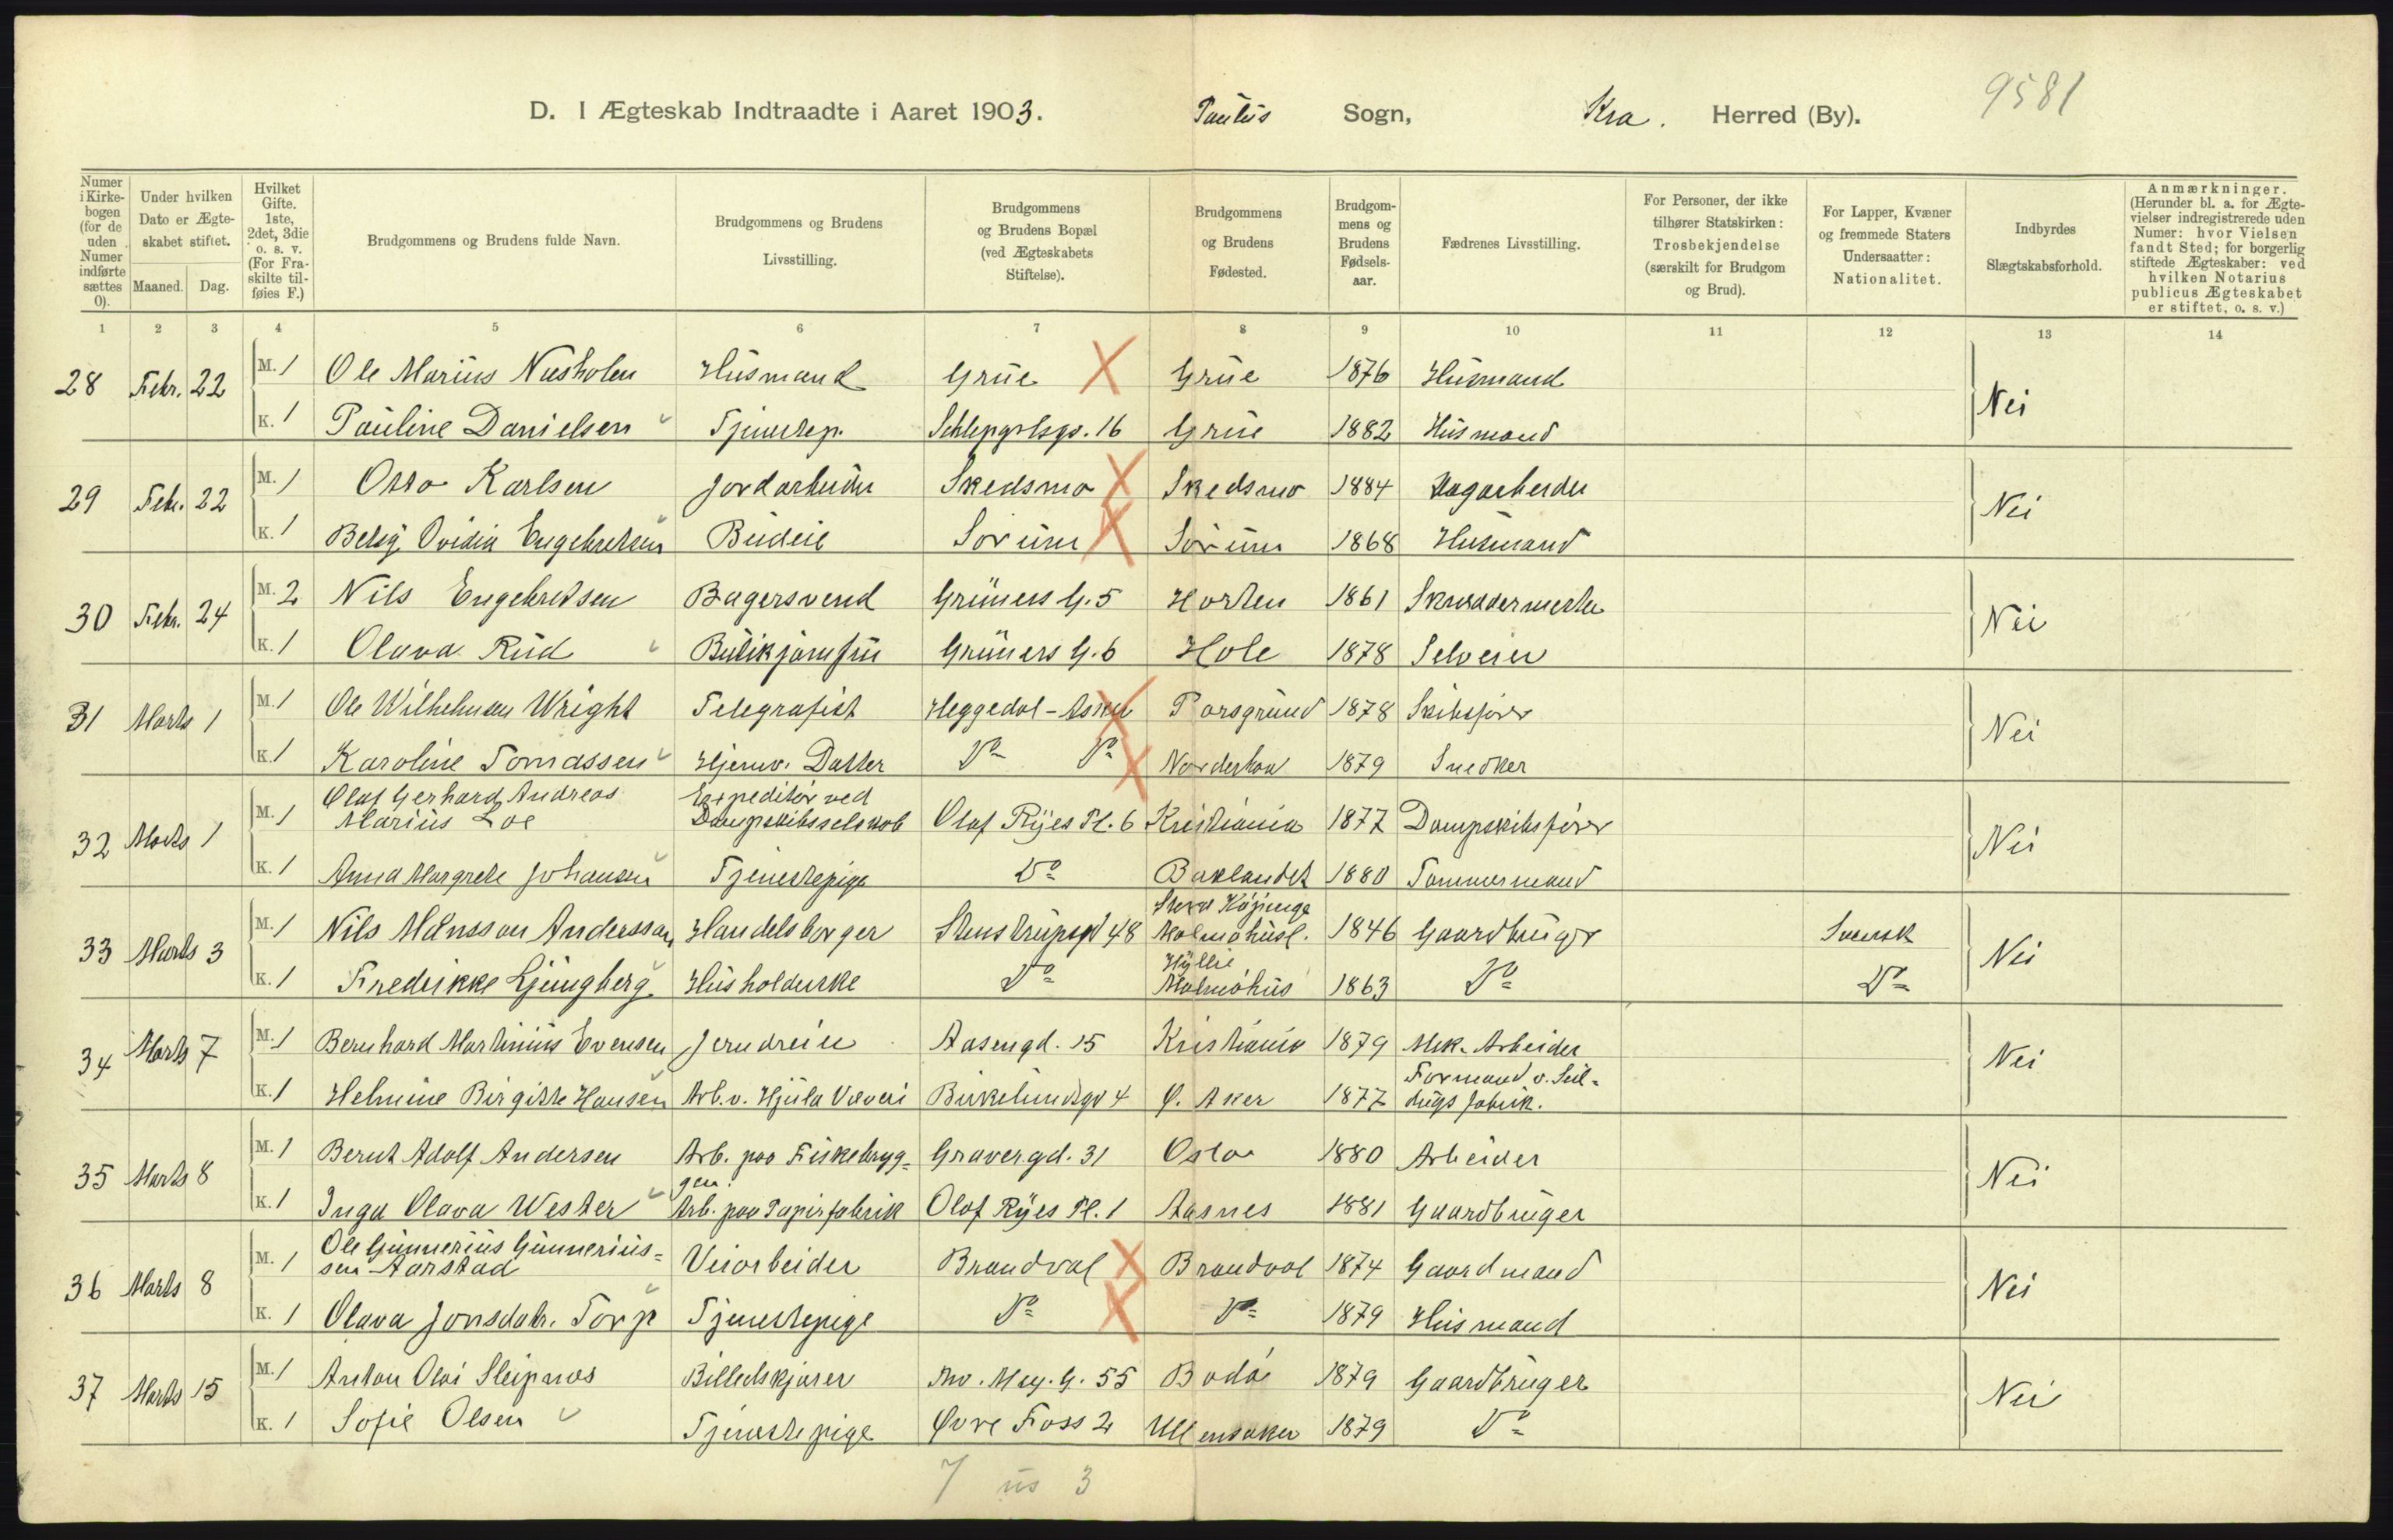 9581
D. I Ægteskab Indtraadte i Aaret 1903. Paulus Sogn, Kra. Herred (By).
Numer i Kirkebogen (for de uden Numer indførte sættes 0). Under hvilken Dato er Ægteskabet stiftet. Maaned. Dag. Hvilket Gifte. 1ste, 2det, 3die o. s. v. (For Fraskilte tilføies F.) Brudgommens og Brudens fulde Navn. Brudgommens og Brudens Livsstilling. Brudgommens og Brudens Bopæl (ved Ægteskabets Stiftelse). Brudgommens og Brudens Fødested. Brudgommens og Brudens Fødselsaar. Fædrenes Livsstilling. For Personer, der ikke tilhører Statskirken: Trosbekjendelse (særskilt for Brudgom og Brud). For Lapper, Kvæner og fremmede Staters Undersaatter: Nationalitet. Indbyrdes Slægtskabsforhold. Anmærkninger. (Herunder bl. a. for Ægtevielser indregistrerede uden Numer: hvor Vielsen fandt Sted; for borgerlig stiftede Ægteskaber: ved hvilken Notarius publicus Ægteskabet er stiftet, o. s. v.)
1 2 3 4 5 6 7 8 9 10 11 12 13 14
28 Febr. 22 M. 1 Ole Marius Næsholen Husmand Grue Grue 1876 Husmand Nei
K. 1 Pauline Danielsen Tjenestep. Schlepgrlsgd. 16 Grue 1882 Husmand
29 Febr. 22 M. 1 Otto Karlsen Jordarbeider Skedsmo Skedsmo 1884 Dagarbeider Nei
K. 1 Betsy Ovidia Engebretsen Budeie Sørum Sørum 1868 Husmand
30 Febr. 24 M. 2 Nils Engebretsen Bagersvend Grüners G. 5 Horten 1861 Skræddermester Nei
K. 1 Olava Rud Butikjomfru Grüners G. 6 Hole 1878 Selveier
31 Marts 1 M. 1 Ole Wilhelmsen Wright Telegrafist Heggedal - Asker Porsgrund 1878 Skibsfører Nei
K. 1 Karoline Tomassen Hjemv. Datter Do Do Norderhov 1879 Snedker
32 Marts 1 M. 1 Olaf Gerhard Andreas Marius Loe Expeditør ved Dampskibsselskab Olaf Ryes Pl. 6 Kristiania 1877 Dampskibsfører Nei
K. 1 Anna Margrete Johansen Tjenestepige Do Baklandet 1880 Tømmermand
33 Marts 3 M. 1 Nils Månsson Andersson Handelsborger Stenstrupsgd 48 Stora Köpinge Malmöhusl. 1846 Gaardbruger Svensk Nei
K. 1 Fredrikke Ljungberg Husholderske Do Hyllie Malmöhus 1863 Do Do
34 Marts 7 M. 1 Bernhard Martinius Evensen Jerndreier Aasengd. 15 Kristiania 1879 Mek. Arbeider Nei
K. 1 Helmine Birgitte Hansen Arb. v. Hjula Væveri Birkelundsgd 4 Ø. Aker 1877 Formand v. Seildugsfabrik.
35 Marts 8 M. 1 Bernt Adolf Andersen Arb. paa Fiskebryggen. Gravergd. 31 Oslo 1880 Arbeider Nei
K. 1 Inga Olava Wester Arb. paa Papirfabrik Olaf Ryes Pl. 1 Aasnes 1881 Gaardbruger
36 Marts 8 M. 1 Ole Gunnerius Gunneriussen Aarstad Veiarbeider Brandval Brandval 1874 Gaardmand Nei
K. 1 Olava Jonsdatr. Torp Tjenestepige Do Do 1879 Husmand
37 Marts 15 M. 1 Anton Olai Sleipnæs Billedskjærer Thv. Mey. G. 55 Bodø 1879 Gaardbruger Nei
K. 1 Sofie Olsen Tjenestepige Øvre Foss 2 Ullensaker 1879 Do
7 us 3